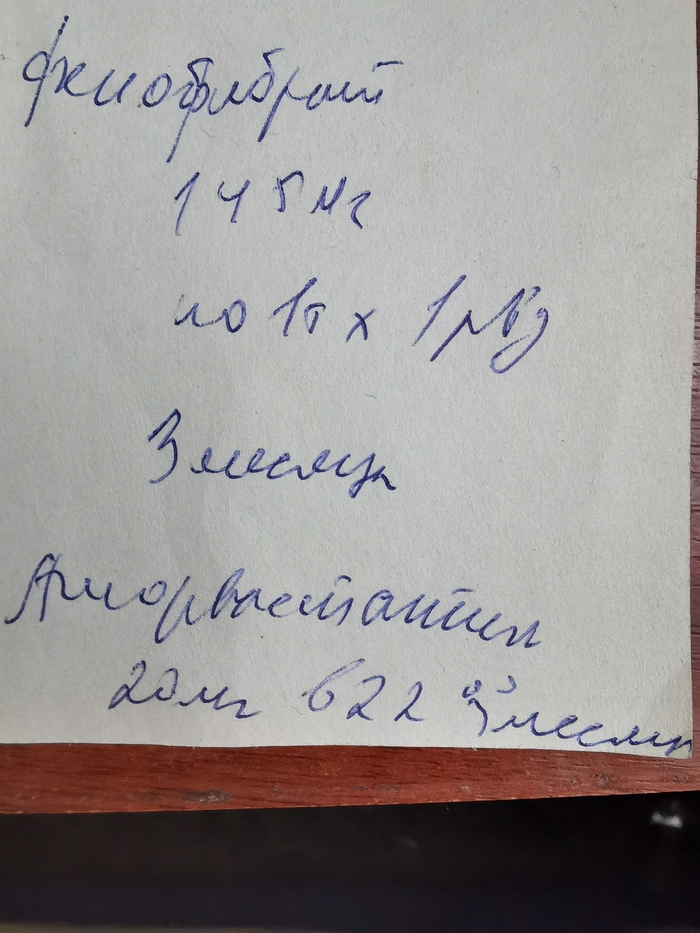 Фенофибрат
145 мг
по 1т х 1 р в д
3 месяца
Аторвастатин
20 мг в 22 3 месяца